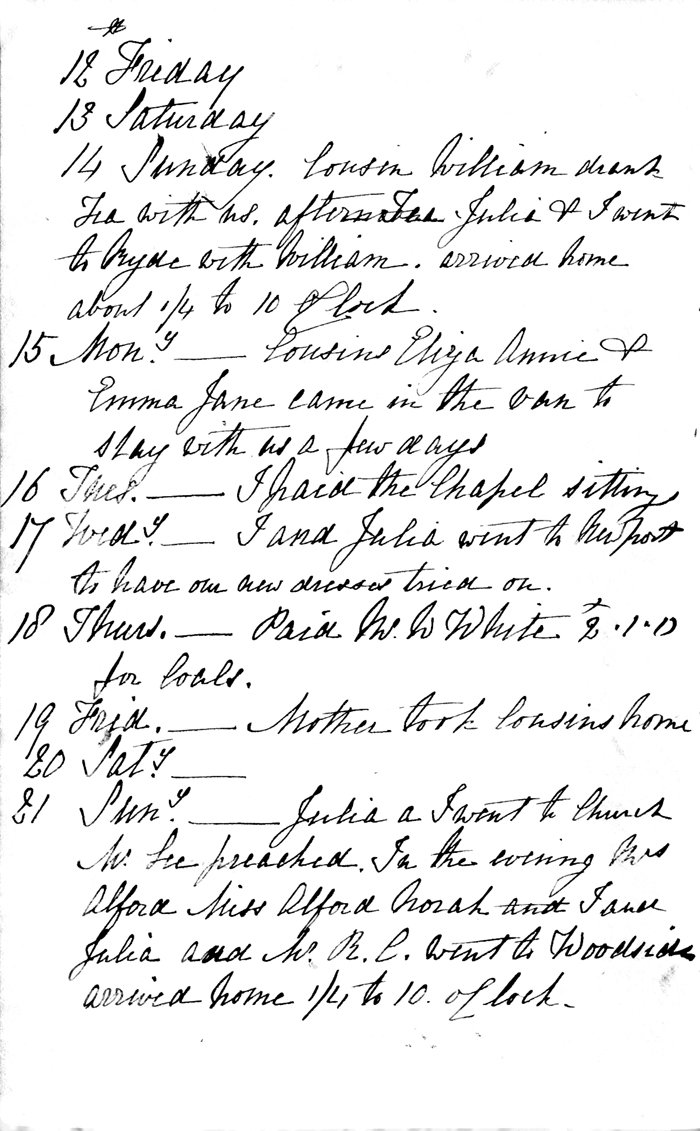 12 Friday
13 Saturday
14 Sunday. Cousin William drank
Tea with us. after Tea Julia & I went
to Ryde with William. arrived home
about 1/4 to 10 O'Clock.
15 Mon.y — Cousins Eliza Annie &
Emma Jane came in the van to
stay with us a few days
16 Tues. — I paid the Chapel sitting
17 Wed.y — I and Julia went to Newport
to have our new dresses tried on.
18 Thurs. — Paid Mr. W White £2.1.0
for Coals.
19 Frid. — Mother took Cousins home
20 Sat.y —
21 Sun.y — Julia a I went to Church
Mr. Lee preached. In the evening Mrs
Alford Miss Alford Norah and I and
Julia and Mr. R. C. went to Woodside
arrived home 1/4 to 10. o'Clock.